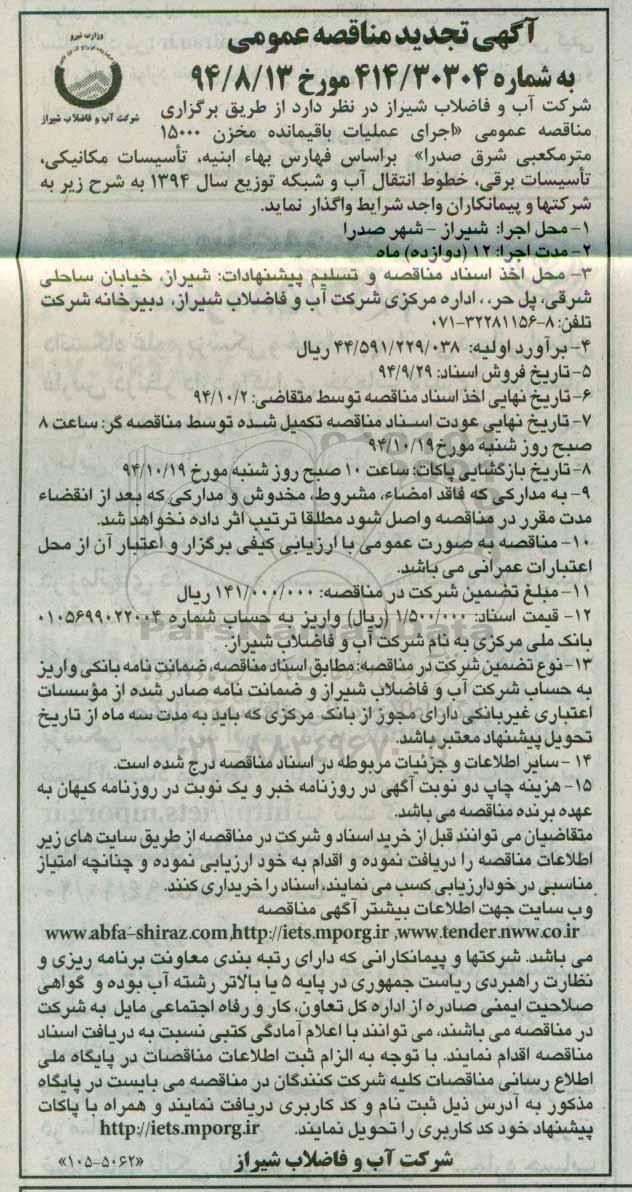 آگهی تجدید مناقصه عمومی
به شماره ۴۱۴/۳۰۳۰۴ مورخ ۹۴/۸/۱۳
وزارت نیرو
شرکت آب و فاضلاب شیراز
شرکت آب و فاضلاب شیراز در نظر دارد از طریق برگزاری
مناقصه عمومی «اجرای عملیات باقیمانده مخزن ۱۵۰۰۰
مترمکعبی شرق صدرا» براساس فهارس بهاء ابنیه، تأسیسات مکانیکی،
تأسیسات برقی، خطوط انتقال آب و شبکه توزیع سال ۱۳۹۴ به شرح زیر به
شرکتها و پیمانکاران واجد شرایط واگذار نماید.
۱- محل اجرا: شیراز - شهر صدرا
۲- مدت اجرا: ۱۲ (دوازده) ماه
۳- محل اخذ اسناد مناقصه و تسلیم پیشنهادات: شیراز، خیابان ساحلی
شرقی، پل حر، ، اداره مرکزی شرکت آب و فاضلاب شیراز، دبیرخانه شرکت
تلفن: ۸-۳۲۲۸۱۱۵۶-۰۷۱
۴- برآورد اولیه: ۴۴/۵۹۱/۲۲۹/۰۳۸ ریال
۵- تاریخ فروش اسناد: ۹۴/۹/۲۹
۶- تاریخ نهایی اخذ اسناد مناقصه توسط متقاضی: ۹۴/۱۰/۲
۷- تاریخ نهایی عودت اسناد مناقصه تکمیل شده توسط مناقصه گر: ساعت ۸
صبح روز شنبه مورخ ۹۴/۱۰/۱۹
۸- تاریخ بازگشایی پاکات: ساعت ۱۰ صبح روز شنبه مورخ ۹۴/۱۰/۱۹
۹- به مدارکی که فاقد امضاء، مشروط، مخدوش و مدارکی که بعد از انقضاء
مدت مقرر در مناقصه واصل شود مطلقا ترتیب اثر داده نخواهد شد.
۱۰- مناقصه به صورت عمومی با ارزیابی کیفی برگزار و اعتبار آن از محل
اعتبارات عمرانی می باشد.
۱۱- مبلغ تضمین شرکت در مناقصه: ۱۴۱/۰۰۰/۰۰۰ ریال
۱۲- قیمت اسناد: ۱/۵۰۰/۰۰۰ (ریال) واریز به حساب شماره ۰۱۰۵۶۹۹۰۲۲۰۰۴
بانک ملی مرکزی به نام شرکت آب و فاضلاب شیراز.
۱۳- نوع تضمین شرکت در مناقصه: مطابق اسناد مناقصه، ضمانت نامه بانکی واریز
به حساب شرکت آب و فاضلاب شیراز و ضمانت نامه صادر شده از مؤسسات
اعتباری غیربانکی دارای مجوز از بانک مرکزی که باید به مدت سه ماه از تاریخ
تحویل پیشنهاد معتبر باشد.
۱۴- سایر اطلاعات و جزئیات مربوطه در اسناد مناقصه درج شده است.
۱۵- هزینه چاپ دو نوبت آگهی در روزنامه خبر و یک نوبت در روزنامه کیهان به
عهده برنده مناقصه می باشد.
متقاضیان می توانند قبل از خرید اسناد و شرکت در مناقصه از طریق سایت های زیر
اطلاعات مناقصه را دریافت نموده و اقدام به خود ارزیابی نموده و چنانچه امتیاز
مناسبی در خودارزیابی کسب می نمایند، اسناد را خریداری کنند.
وب سایت جهت اطلاعات بیشتر آگهی مناقصه
www.abfa-shiraz.com,http://iets.mporg.ir ,www.tender.nww.co.ir
می باشد. شرکتها و پیمانکارانی که دارای رتبه بندی معاونت برنامه ریزی و
نظارت راهبردی ریاست جمهوری در پایه ۵ یا بالاتر رشته آب بوده و گواهی
صلاحیت ایمنی صادره از اداره کل تعاون، کار و رفاه اجتماعی مایل به شرکت
در مناقصه می باشند، می توانند با اعلام آمادگی کتبی نسبت به دریافت اسناد
مناقصه اقدام نمایند. با توجه به الزام ثبت اطلاعات مناقصات در پایگاه ملی
اطلاع رسانی مناقصات کلیه شرکت کنندگان در مناقصه می بایست در پایگاه
مذکور به آدرس ذیل ثبت نام و کد کاربری دریافت نمایند و همراه با پاکات
پیشنهاد خود کد کاربری را تحویل نمایند. http://iets.mporg.ir
شرکت آب و فاضلاب شیراز «۱۰۵-۵۰۶۲»